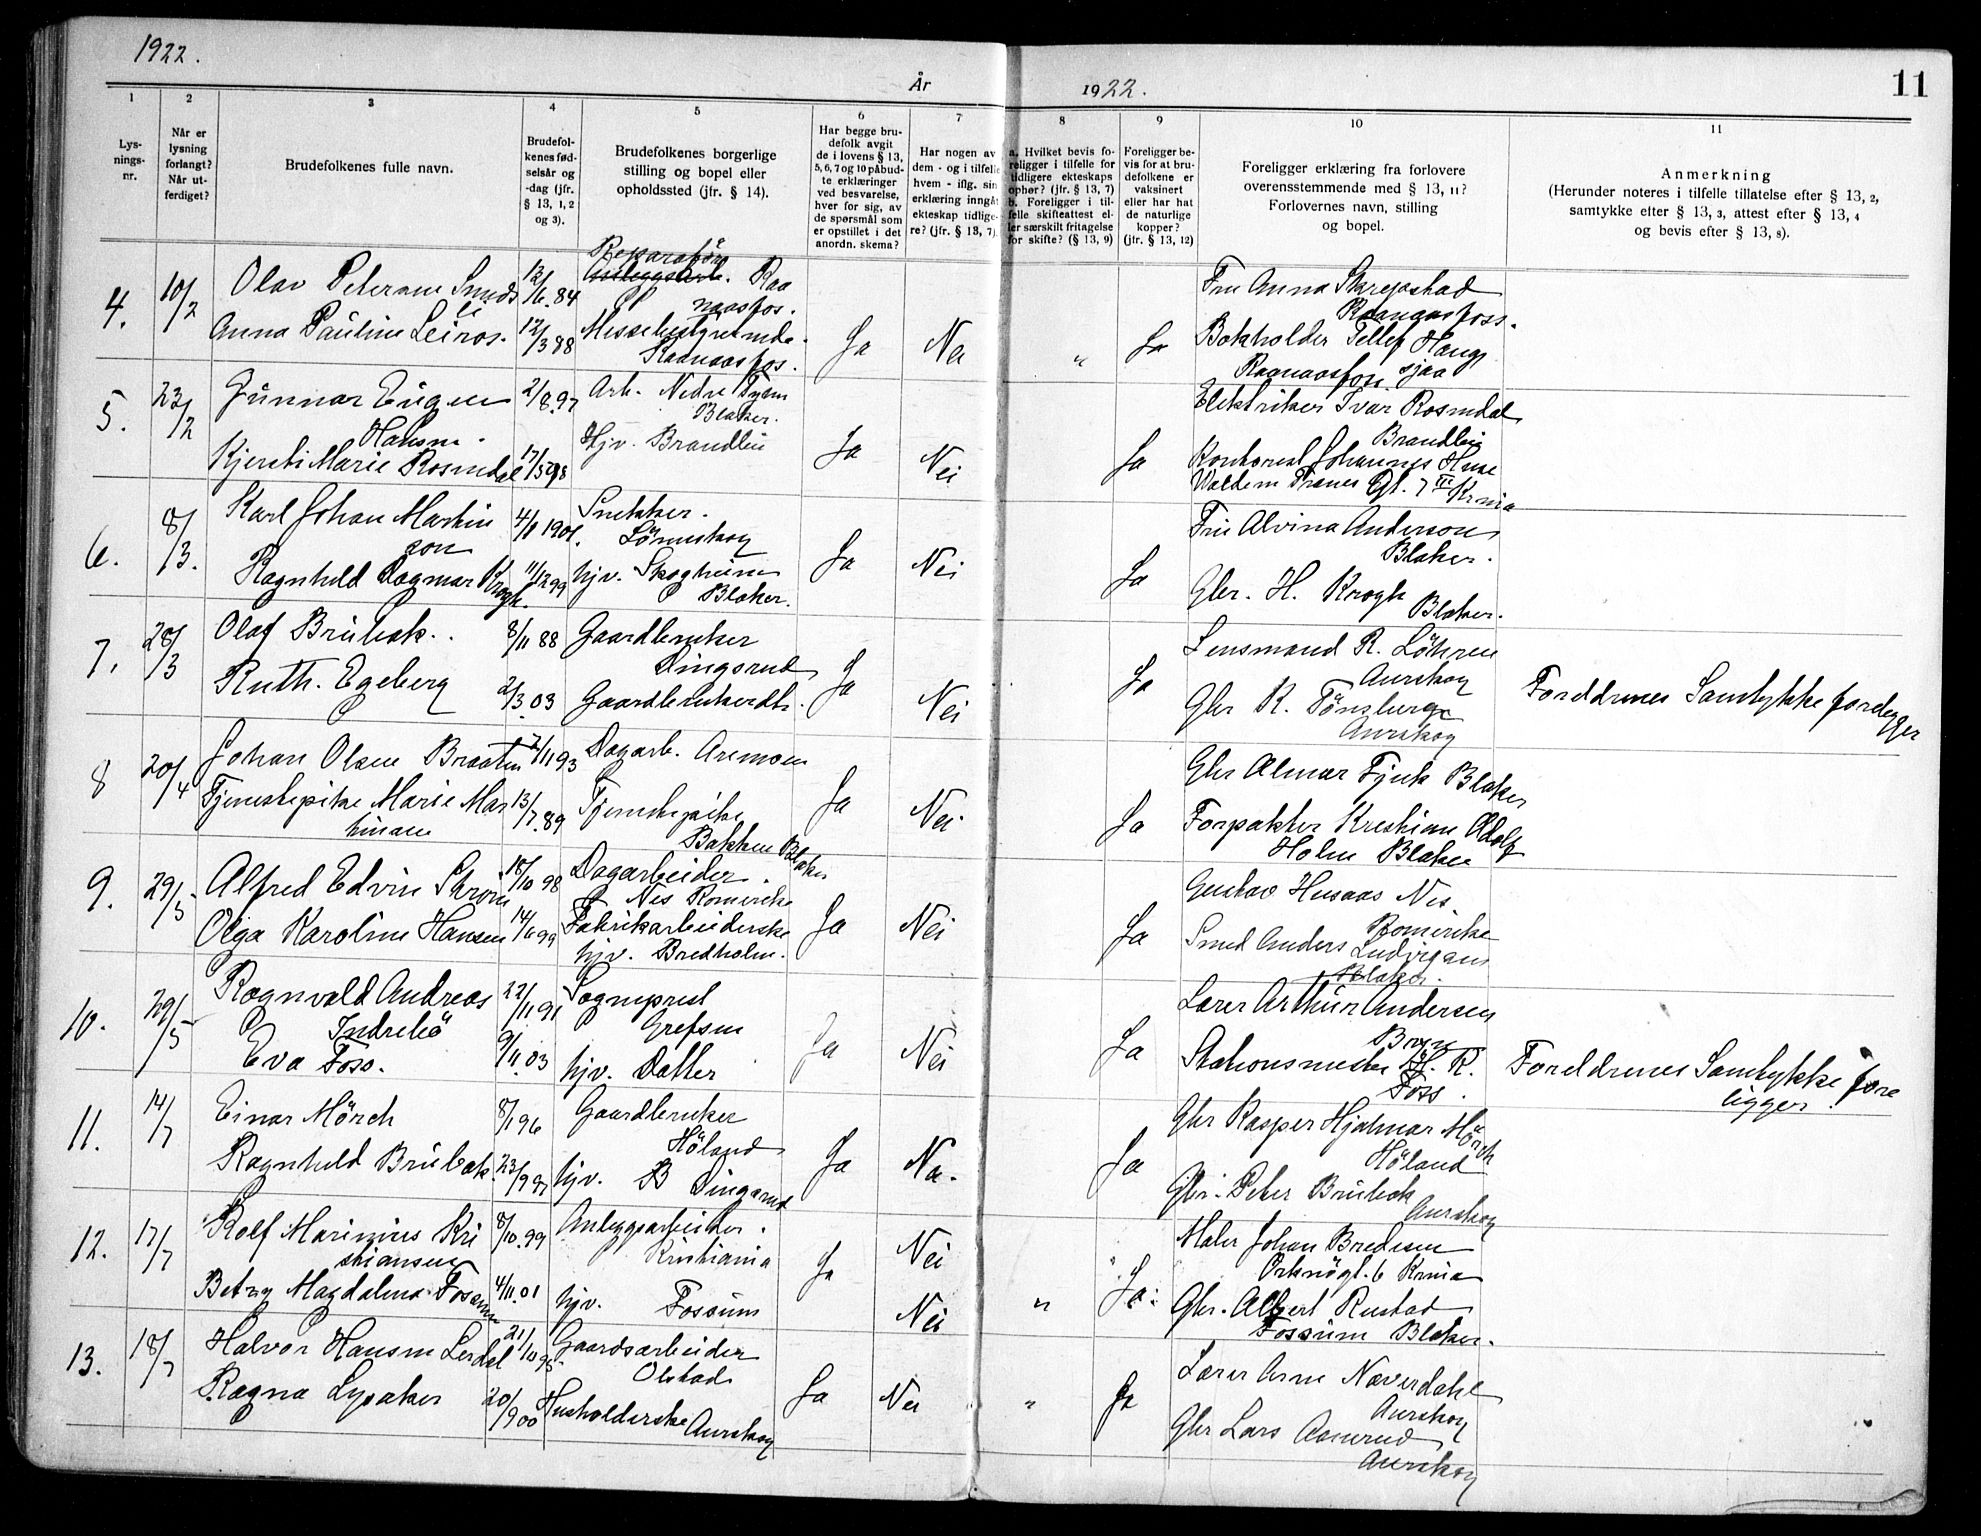 1922.
År
1922.
11
1
2
3
4
5
6
7
8
9
10
11
Lys-
nings-
nr.
Når er
lysning
forlangt?
Når ut-
ferdiget?
Brudefolkenes fulle navn.
Brudefol-
kenes fød-
selsår og
-dag (jfr.
§ 13, 1, 2
og 3).
Brudefolkenes borgerlige
stilling og bopel eller
opholdssted (jfr. § 14).
Har begge bru-
defolk avgit
de i lovens § 13,
5, 6, 7 og 10 påbud-
te erklæringer
ved besvarelse,
hver for sig, av
de spørsmål som
er opstillet i det
anordn. skema?
Har nogen av
dem - og i tilfelle
hvem - iflg. sin
erklæring inngåt
ekteskap tidlige-
re? (jfr. § 13, 7)
a. Hvilket bevis fo-
religger i tilfelle for
tidligere ekteskaps
ophør? (jfr. § 13, 7)
b. Foreligger i til-
felle skifteattest el-
ler særskilt fritagelse
for skifte? (§ 13, 9)
Foreligger be-
vis for at bru-
defolkene er
vaksinert
eller har hat
de naturlige
kopper?
(jfr. § 13, 12)
Foreligger erklæring fra forlovere
overensstemmende med § 13, 11?
Forlovernes navn, stilling
og bopel.
Anmerkning
(Herunder noteres i tilfelle tillatelse efter § 13, 2,
samtykke efter § 13, 3, attest efter § 13, 4
og bevis efter § 13, 8).
4.
10/2
Olav
Anna Pauline Leiros.
12/3 88
Raanaasfos.
Ja
Nei
"
Ja
Fru Anna Skrepstad
Raanaasfoss.
Bokholder Tellef Haug
Raanaasfoss
5.
23/2
Gunnar Eugen
Hansen.
2/8.97
Arb. Nedre
Blaker.
Kjersti Marie Rosendal
17/5 98
Hjv. Brandlien
Ja
Nei
Ja
Elektriker Ivar Rosendal
Brandlien
Kontorist Johannes
Gt. 7 III Krnia
6.
8/3.
Karl Johan Martin
son
4/11 1901.
Snekker.
Lörenskog
Ragnhild Dagmar Krogh.
11/12 99
hjv. Skoghеim
Blaker.
Ja
Nei
Ja
Fru Alvina Anderson
Blaker.
Gbr. H. Krogh
Blaker.
7.
28/3
Olaf Brubak.
8/11 88
Gaardbruker
Dingsrud
Ruth. Egeberg
2/3.03
Gaardbrukerdtr.
Ja
Nei
Ja
Lensmand R. Löhren
Aurskog
Gbr K. Tönsberg
Aurskog
Forældrenes Samtykke foreligger
8
20/4
Johan Olsen Braaten
Dagarb. Aremoen
Tjenestepike Marie Mar
tinsen
13/7.89
Tjenestepike
Bakken Blaker
Ja
Nei
Ja
Gbr Elmar Tjuk Blaker
Forpakter Kristian Adolf
Holm Blaker
9.
29/5
Alfred Edvin
18/10 98
Dagarbeider.
Nes Romerike
Olga Karoline Hansen
14/6 99
Fabrikarbeiderske
hjv. Bredholen.
Ja
Nei
Ja
Gustav Husaas Nes
Romerike
Smed Anders Ludvigsen
Blaker.
10.
29/5
Ragnvald Andreas
Indrebö
22/11 91
Sogneprest
Grefsen
Eva Foss.
9/11.03
hjv. Datter
Ja
Nei
Ja
Lærer Arthur Andersen
Bryn
Stationsmester H. R.
Foss.
Forældrenes Samtykke fore
ligger.
11.
14/7
Einar Mörch
8/1 96
Gaardbruker
Höland
Ragnhild Brubak.
23/9 97
hjv. B Dingsrud
Ja
Nei.
Ja
Gbr Kasper Hjalmar Mörch
Höland
Gbr. Peter Brubak
Aurskog
12.
17/7
Rolf Marinius Kri
stiansen
8/10.99
Anlegsarbeider.
Kristiania
Betzy Magdalena Fossum
4/11.01
hjv. Fossum
Ja
Nei
Nei
"
Ja
Maler Johan Bredesen
Orknögt. 6 Krnia
Gbr. Albert Rustad
Fossum Blaker.
13.
18/7
Halvor Hansen Lerdal
Gaardsarbeider
Olstad
Ragna Lysaker
20/9 00
Husholderske Aurskog
Ja
Nei
"
Ja
Lærer Arne Naverdahl
Aurskog
Gbr Lars Aamrud
Aurskog